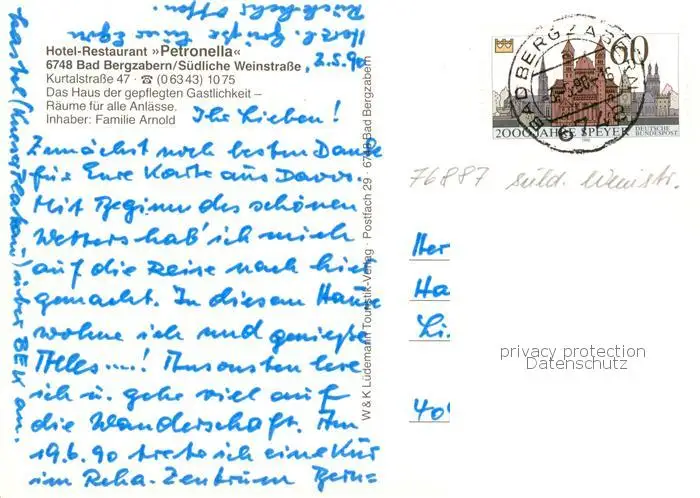 Hotel-Restaurant »Petronella«
6748 Bad Bergzabern/Südliche Weinstraße,
Kurtalstraße 47 · ☎ (0 63 43) 10 75
Das Haus der gepflegten Gastlichkeit –
Räume für alle Anlässe.
Inhaber: Familie Arnold
2.5.90
Ihr Lieben!
Zunächst noch besten Dank
für Eure Karte aus Davos.
Mit Beginn des schönen
Wetters hab' ich mich
auf die Reise nach hier
gemacht. In diesem Hause
wohne ich und genieße
Alles....! Ansonsten lese
ich u. gehe viel auf
die Wanderschaft. Am
19.6.90 trete ich eine Kur
im Reha-Zentrum Bern=
Herzl. Grüße Eure
W & K Lüdemann Touristik-Verlag · Postfach 29 · 6748 Bad Bergzabern
BAD BERGZABERN
60
2000 JAHRE SPEYER
DEUTSCHE
BUNDESPOST
76887 südl. Weinstr.
Her
Ha
Li
40
privacy protection
Datenschutz